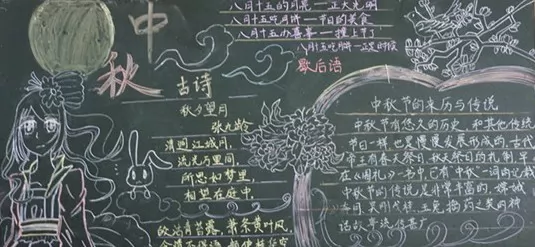 中
秋
八月十五的月亮一正大光明
八月十五吃月饼一节日的美食
八月十五办喜事一撞上节了
八月十五吃月饼一正是时候
歇后语
古诗
秋夕望月
张九龄
清迥江城月,
流光万里同,
所思如梦里
相望在庭中
皎洁青苔露,萧条黄叶风,
含情不得语
中秋节的来历与传说
中秋节有悠久的历史,和其他传统
节日一样,也是慢慢发展形成的,古代
帝王有春天祭日,秋天祭月的礼制,早
在《周礼》一书中,已有“中秋”一词的记载
中秋节的传说是非常丰富的,嫦娥
奔月,吴刚伐桂,玉兔捣药之类的神
话故事流传甚广